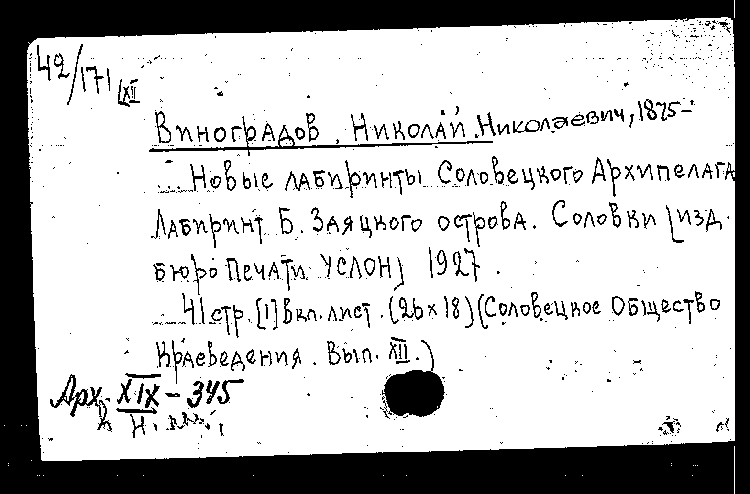 42/171 XII
Виноградов, Николай Николаевич, 1875-
Новые лабиринты Соловецкого Архипелага
Лабиринт Б. Заяцкого острова. Соловки [изд.
бюро Печати УСЛОН] 1927.
41 стр. [1] вкл. лист. (26 x 18) (Соловецкое Общество
Краеведения. Вып. XII.)
Арх. XIX - 345